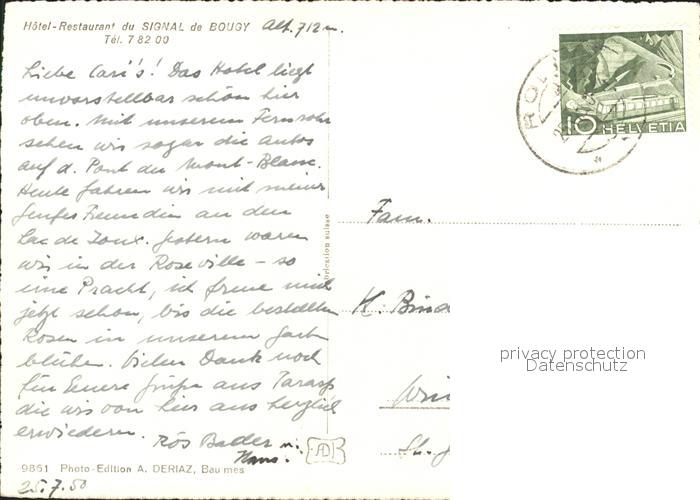 Hôtel-Restaurant du SIGNAL de BOUGY Alt. 712 m.
Tél. 7 82 00
Liebe Cari's! Das Hotel liegt
unvorstellbar schön hier
oben. Mit unserem Fernrohr
sehen wir sogar die Autos
auf d. Pont du Mont-Blanc.
Heute fahren wir mit meiner
Genfer Freundin an den
Lac de Joux. Gestern waren
wir in der Roseville - so
eine Pracht, ich freue mich
jetzt schon, bis die bestellten
Rosen in unserem Gart
blühen. Vielen Dank noch
für Euere Grüsse aus Tarasp
die wir von hier aus herzlich
erwiedern. Rös Bader u.
Hans.
9861 Photo-Edition A. DERIAZ, Baumes
25.7.50
fabrication suisse
AD
ROL
10 HELVETIA
Fam.
K. Bind
privacy protection
Datenschutz
Win